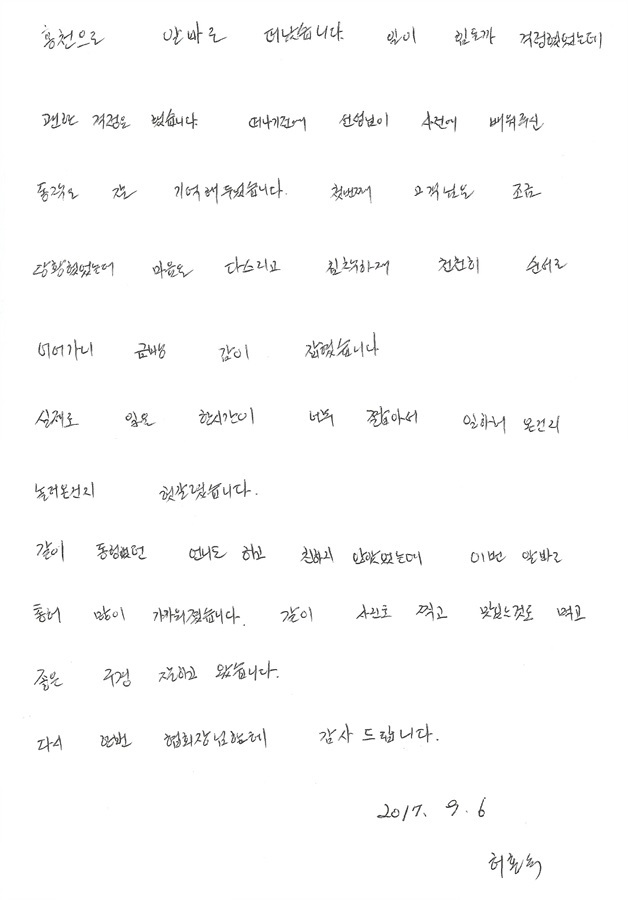 홍천으로 알바로 떠났습니다. 일이 힘든가 걱정했었는데
괜한 걱정을 했습니다 떠나기전에 선생님이 사전에 배워주신
동작을 잘 기억해 두었습니다. 첫번째 고객님은 조금
당황했었는데 마음을 다스리고 침착하게 천천히 순서로
이어가니 금방 감이 잡혔습니다
실제로 일은 한시간이 너무 짧아서 일하러 온건지
놀러온건지 헷갈렸습니다.
같이 동행했던 언니도 하고 친하지 안았었는데 이번 알바로
통해 많이 가까워졌습니다. 같이 사진도 찍고 맛있는것도 먹고
좋은 구경 잘하고 왔습니다.
다시 한번 협회장님한테 감사 드립니다.
2017. 9. 6